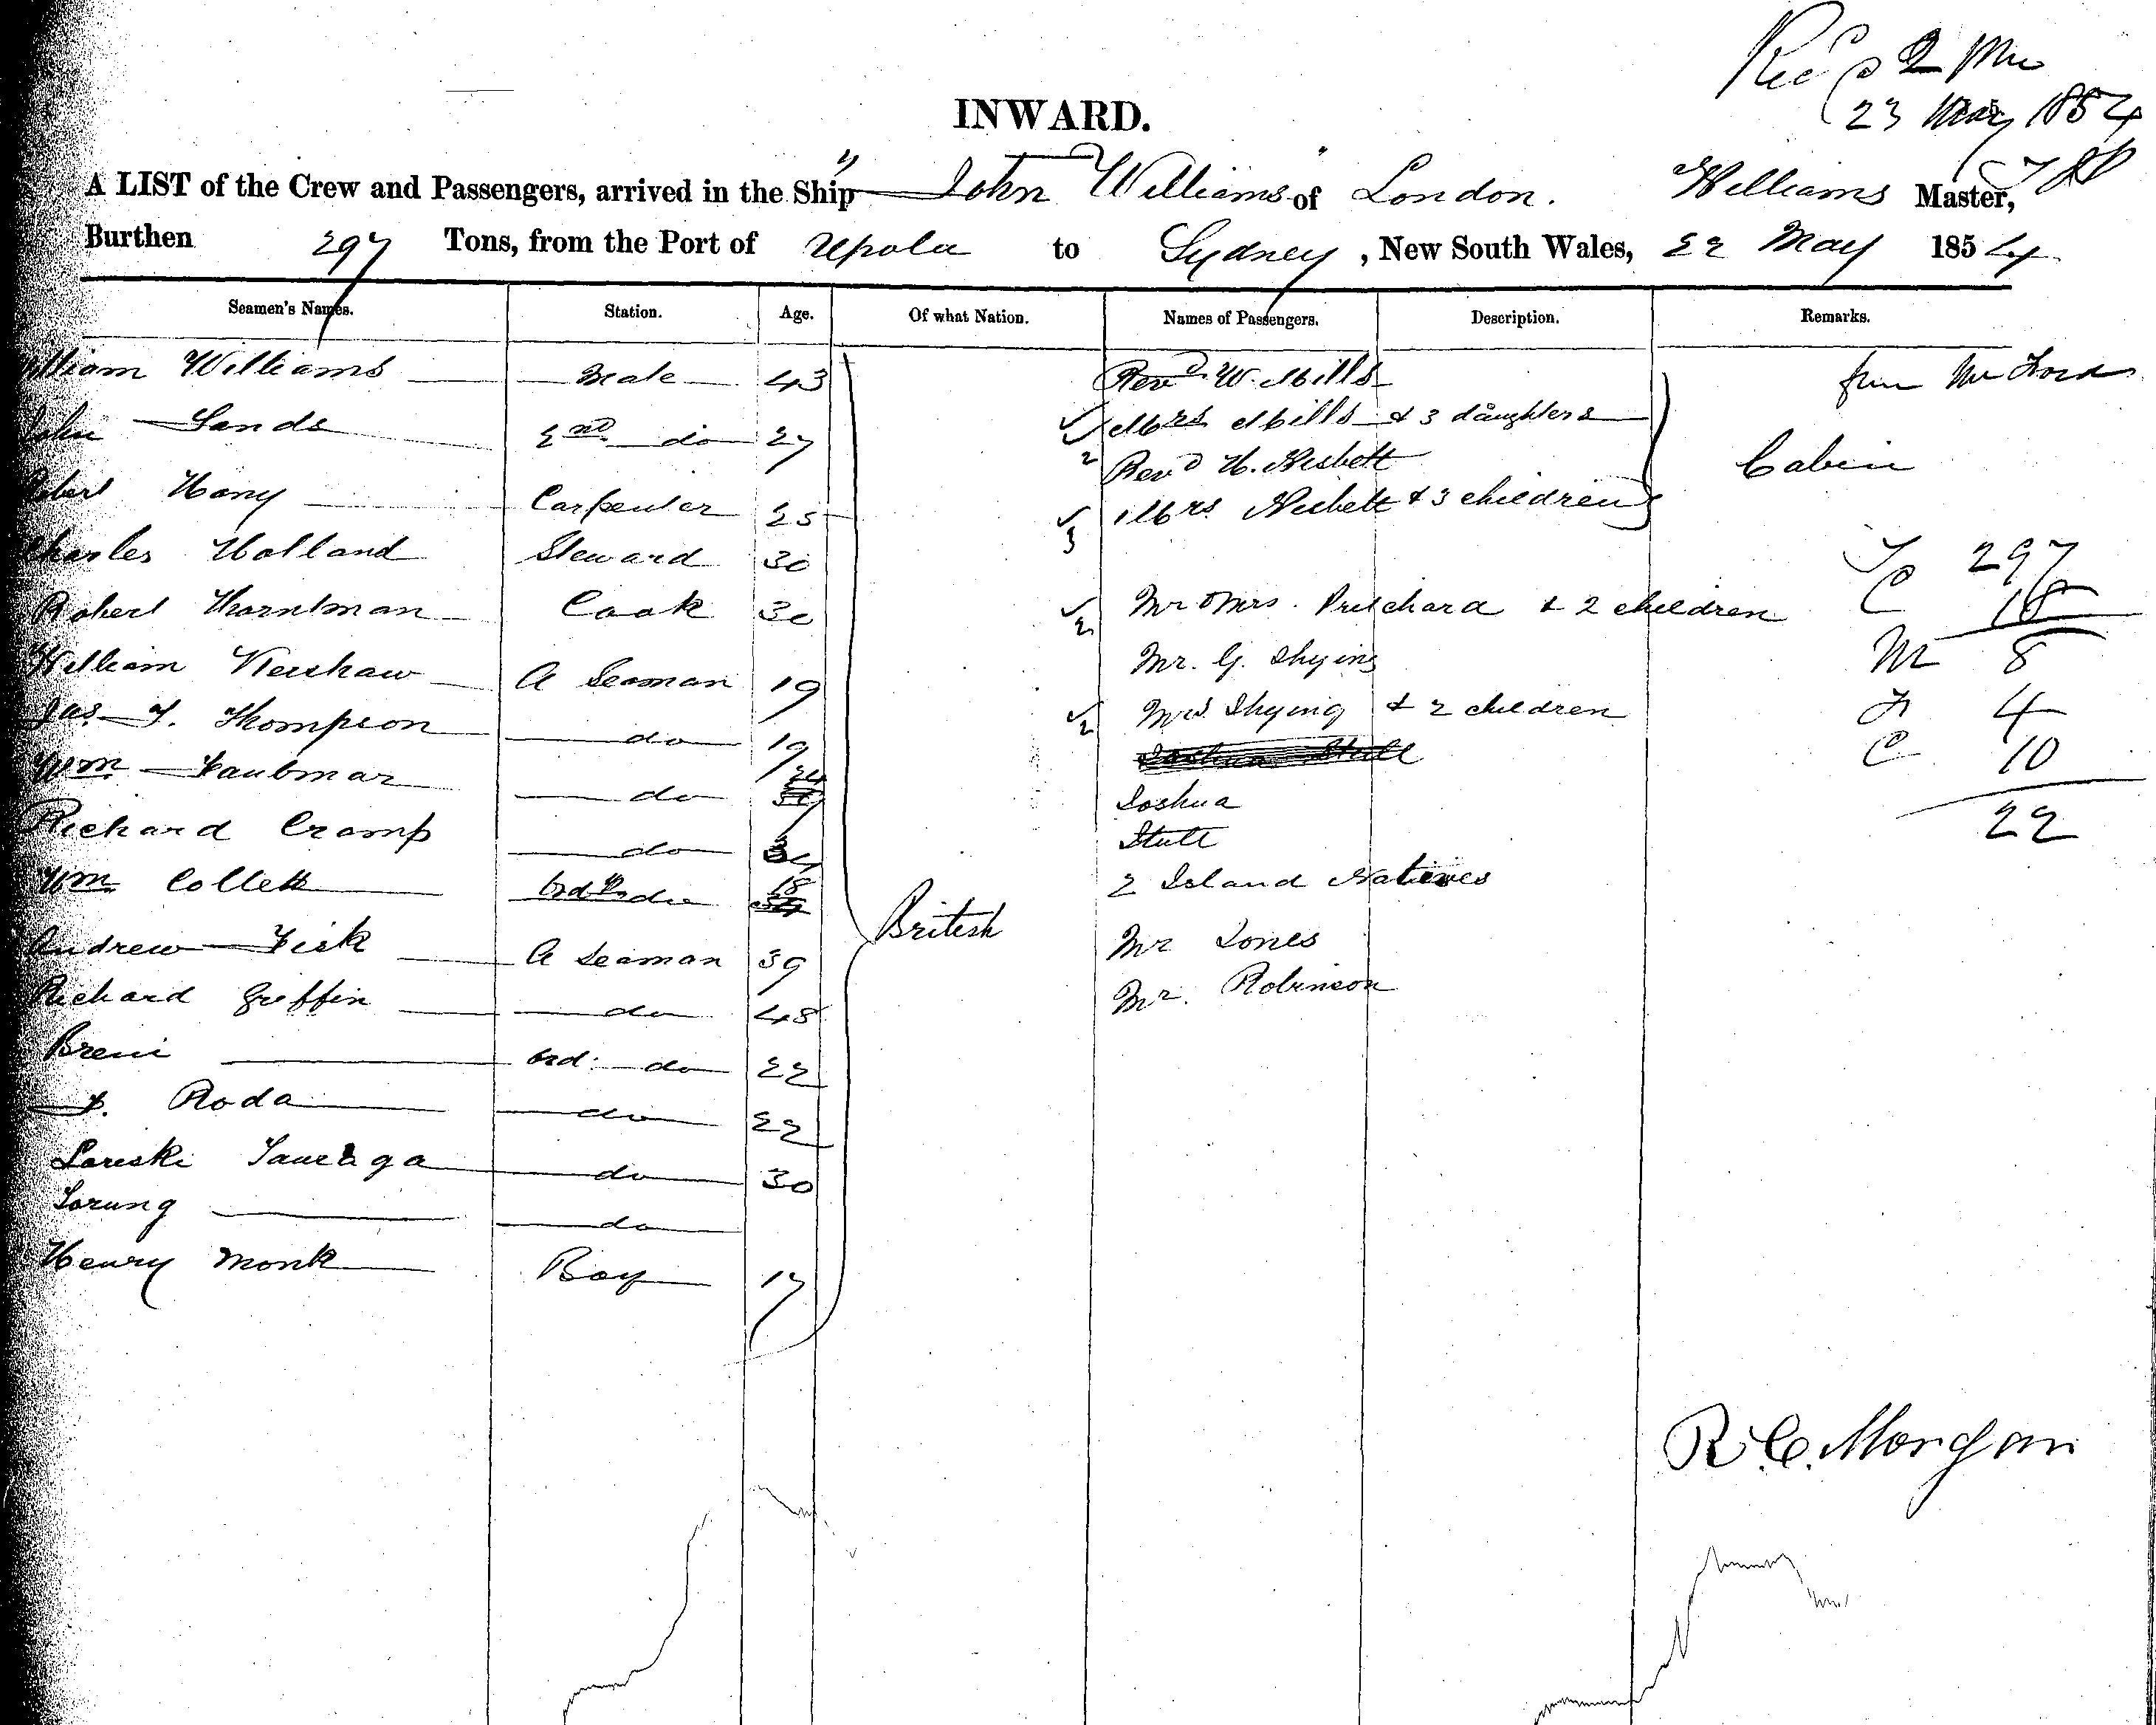 Rec^d 2 PM
23 May 1854
INWARD.
A LIST of the Crew and Passengers, arrived in the Ship " John Williams " of London. Williams Master,
Burthen 297 Tons, from the Port of Upolu to Sydney, New South Wales, 22 May 1854
Seamen's Names. Station. Age. Of what Nation. Names of Passengers. Description. Remarks.
William Williams Mate 43 Rev^d W. Mills
John Sands 2nd do 27 Mrs Mills & 3 daughters
Rev^d H. Nisbett Cabin
Robert Hany Carpenter 25 Mrs. Nisbett & 3 children
Charles Holland Steward 30 T 297
Robert Thorntman Cook 30 Mr & Mrs. Pritchard & 2 children C 18
William Kershaw A Seaman 19 Mr. G. Shying M 8
Jas. T. Thompson do 19 Mrs. Shying & 2 children F 4
Wm Faubmar do 24 C 10
Joshua 22
Richard Cramp do Stull
Wm Collett Ord do 18 2 Island Natives
British
Andrew Fisk A Seaman 39 Mr Jones
Richard Griffin do 48 Mr. Robinson
Breni Ord: do 22
Roda do 22
Lareski do 30
Sorung do
Henry Monk Boy 17
R. C. Morgan